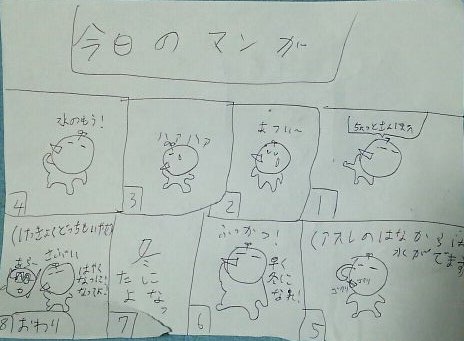 今日のマンガ
ちょっとさんぽ
1
あつい〜
2
ハァ ハァ
3
水のもう!
4
(アスレのはなからは
水がでます
ゴクリ
ゴクリ
5
ふっかつ!
早く
冬に
なれ!
6
冬になっ
たよ
7
(けっきょくどっちもいやだ
さぶい
はやく
なつに
なってよ!
8
おわり